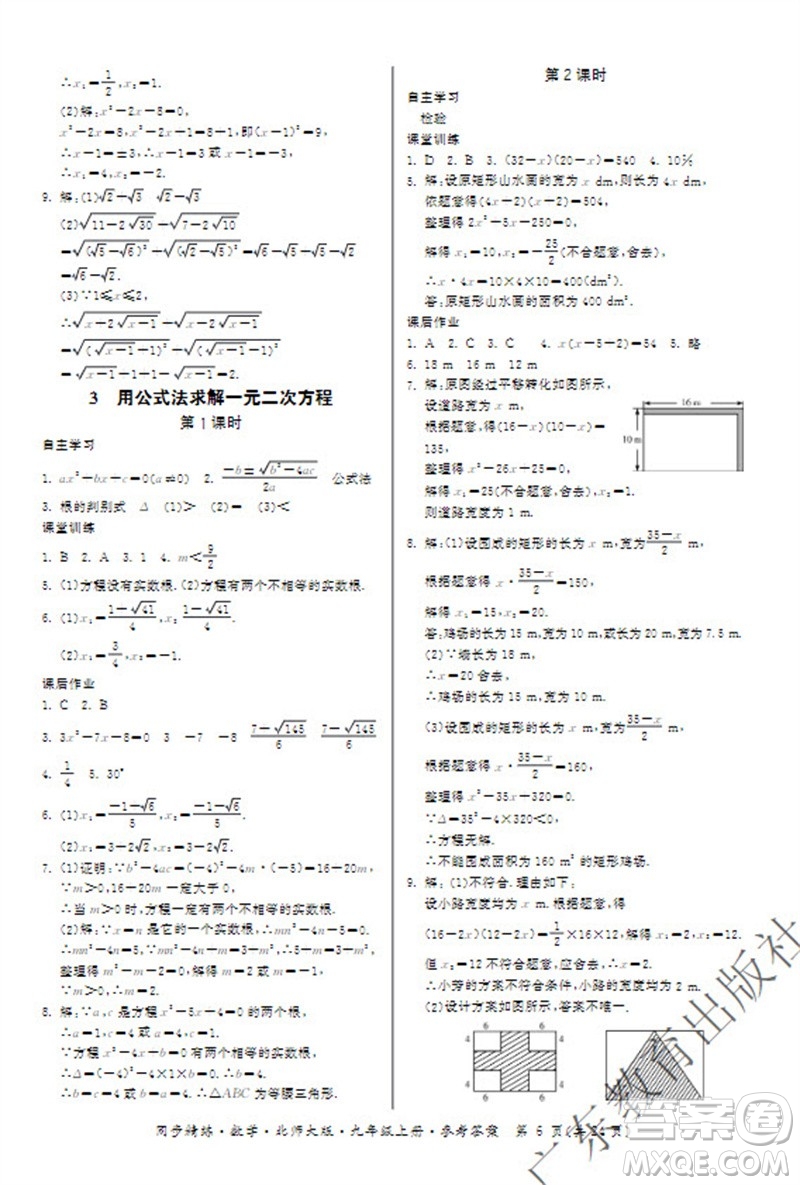 ∴x₁=1/2,x₂=1.
(2)解:x²-2x-8=0,
x²-2x=8,x²-2x+1=8+1,即(x-1)²=9,
∴x-1=±3,∴x-1=±3,
∴x₁=4,x₂=-2.
9. 解:(1)√2+√3 √2-√3
(2)√(11-2√30)+√(7-2√10)
=√((√5-√6)²)+√((√2-√5)²)=√6-√5+√5-√2
=√6-√2.
(3)∵1≤x≤2,
∴√(x+2√(x-1))+√(x-2√(x-1))
=√((√(x-1)+1)²)+√((√(x-1)-1)²)
=√(x-1)+1+1-√(x-1)=2.
3 用公式法求解一元二次方程
第1课时
自主学习
1. ax²+bx+c=0(a≠0) 2. (-b±√(b²-4ac))/2a 公式法
3. 根的判别式 Δ (1)> (2)= (3)<
课堂训练
1. B 2. A 3. 1 4. m<9/2
5. (1)方程没有实数根.(2)方程有两个不相等的实数根.
6. (1)x₁=(1+√41)/4,x₂=(1-√41)/4.
(2)x₁=3/4,x₂=-1.
课后作业
1. C 2. B
3. 3x²-7x-8=0 3 -7 -8 (7+√145)/6 (7-√145)/6
4. 1/4 5. 30°
6. (1)x₁=(-1+√6)/5,x₂=(-1-√6)/5.
(2)x₁=3+2√2,x₂=3-2√2.
7. (1)证明:∵b²-4ac=(-4)²-4m·(-5)=16+20m,
∵m>0,16+20m一定大于0,
∴当m>0时,方程一定有两个不相等的实数根.
(2)解:∵x=n是它的一个实数根,∴mn²-4n-5=0.
∴mn²-4n=5,∵mn²-4n+m=3+m²,∴5+m=3+m²,
∴m²-m-2=0,解得m=2或m=-1,
∵m>0,∴m=2.
8. 解:∵a,c是方程x²-5x+4=0的两个根,
∴a=1,c=4或a=4,c=1.
∵方程x²-4x+b=0有两个相等的实数根,
∴Δ=(-4)²-4×1×b=0.∴b=4.
∴b=c=4或a=b=4.∴△ABC为等腰三角形.
第2课时
自主学习
检验
课堂训练
1. D 2. B 3. (32-x)(20-x)=540 4. 10%
5. 解:设原矩形山水画的宽为x dm,则长为4x dm,
依题意得(4x+2)(x+2)=504,
整理得2x²+5x-250=0,
解得x₁=10,x₂=-25/2(不合题意,舍去),
∴x·4x=10×4×10=400(dm²)
答:原矩形山水画的面积为400 dm².
课后作业
1. A 2. C 3. C 4. x(x+2)=54 5. 略
6. 18 m 16 m 12 m
7. 解:原图经过平移转化如图所示,
设道路宽为x m,
根据题意,得(16-x)(10-x)=
135,
整理得x²-26x+25=0,
解得x₁=25(不合题意,舍去),x₂=1.
则道路宽度为1 m.
16 m
10 m
8. 解:(1)设围成的矩形的长为x m,宽为(35-x)/2 m,
根据题意得x·(35-x)/2=150,
解得x₁=15,x₂=20.
答:鸡场的长为15 m,宽为10 m;或长为20 m,宽为7.5 m.
(2)∵墙长为18 m,
∴x=20舍去,
∴鸡场的长为15 m,宽为10 m.
(3)设围成的矩形的长为x m,宽为(35-x)/2 m,
根据题意得x·(35-x)/2=160,
整理得x²-35x+320=0.
∵Δ=35²-4×320<0,
∴方程无解.
∴不能围成面积为160 m²的矩形鸡场.
9. 解:(1)不符合.理由如下:
设小路宽度均为x m,根据题意,得
(16-2x)(12-2x)=1/2×16×12,解得x₁=2,x₂=12.
但x₂=12不符合题意,应舍去,∴x=2.
∴小芳的方案不符合条件,小路的宽度为2 m.
(2)设计方案如图所示,答案不唯一.
6 6
4 4
4 4
6 6
同步精练·数学·北师大版·九年级上册·参考答案 第6页(共24页)
广东教育出版社
答案圈
MXQE.COM